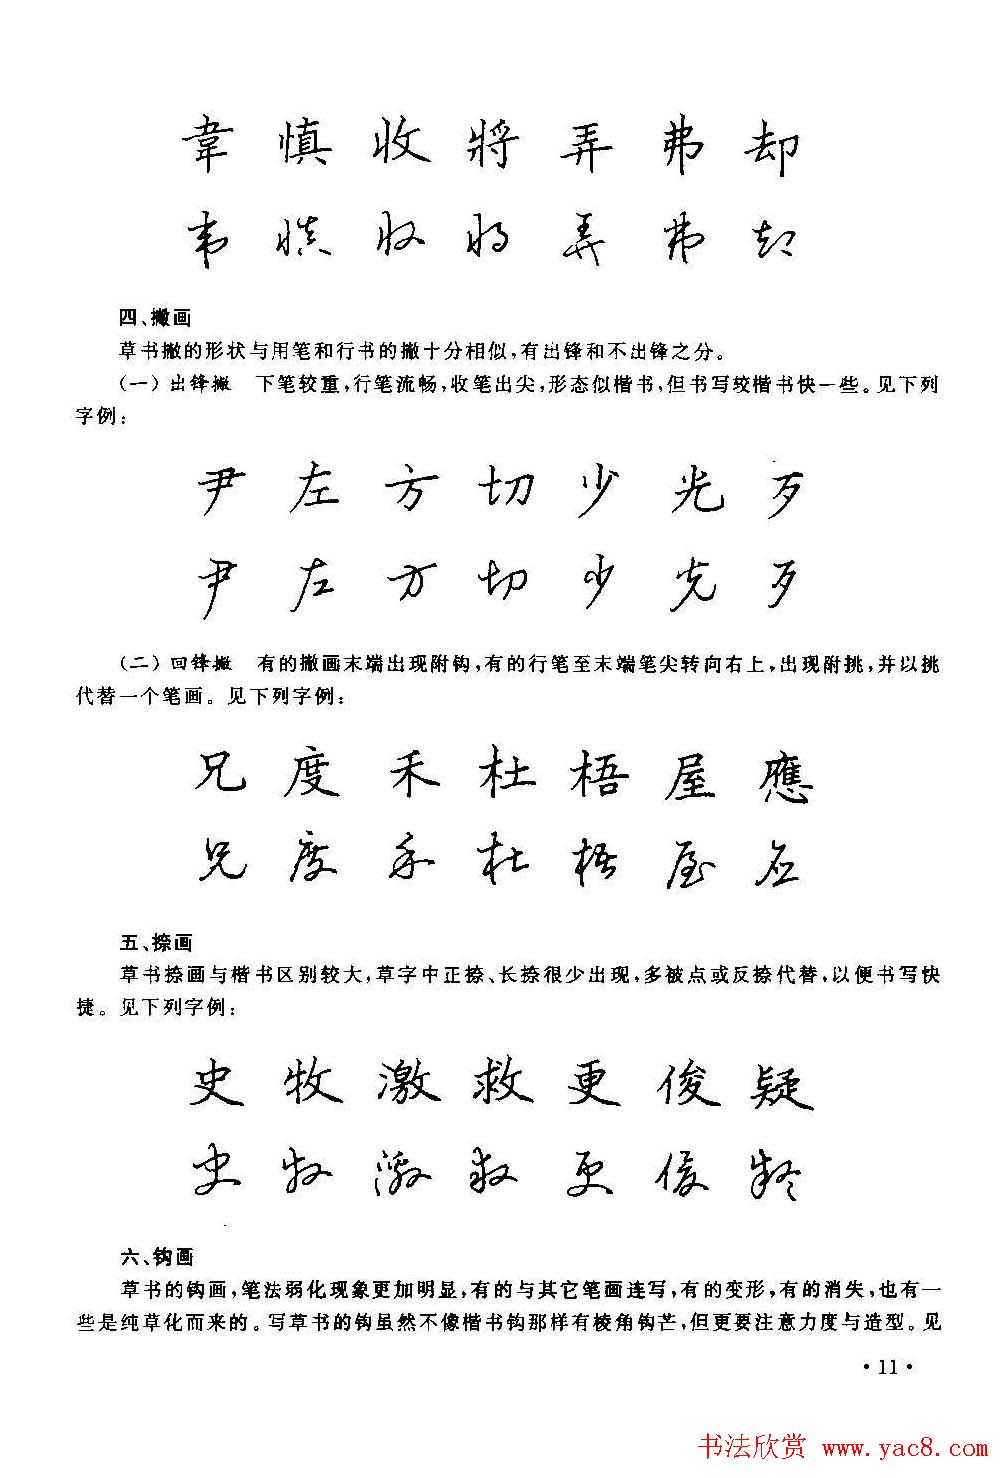 韋 慎 收 將 弄 弗 却
韋 慎 收 將 弄 弗 却
四、撇画
草书撇的形状与用笔和行书的撇十分相似,有出锋和不出锋之分。
(一) 出锋撇　下笔较重,行笔流畅,收笔出尖,形态似楷书,但书写较楷书快一些。见下列
字例:
尹 左 方 切 少 光 歹
尹 左 方 切 少 光 歹
(二) 回锋撇　有的撇画末端出现附钩,有的行笔至末端笔尖转向右上,出现附挑,并以挑
代替一个笔画。见下列字例:
兄 度 禾 杜 梧 屋 應
兄 度 禾 杜 梧 屋 應
五、捺画
草书捺画与楷书区别较大,草字中正捺、长捺很少出现,多被点或反捺代替,以便书写快
捷。见下列字例:
史 牧 激 救 更 俊 疑
史 牧 激 救 更 俊 疑
六、钩画
草书的钩画,笔法弱化现象更加明显,有的与其它笔画连写,有的变形,有的消失,也有一
些是纯草化而来的。写草书的钩虽然不像楷书钩那样有棱角钩芒,但更要注意力度与造型。见
·11·
书法欣赏 www.yac8.com